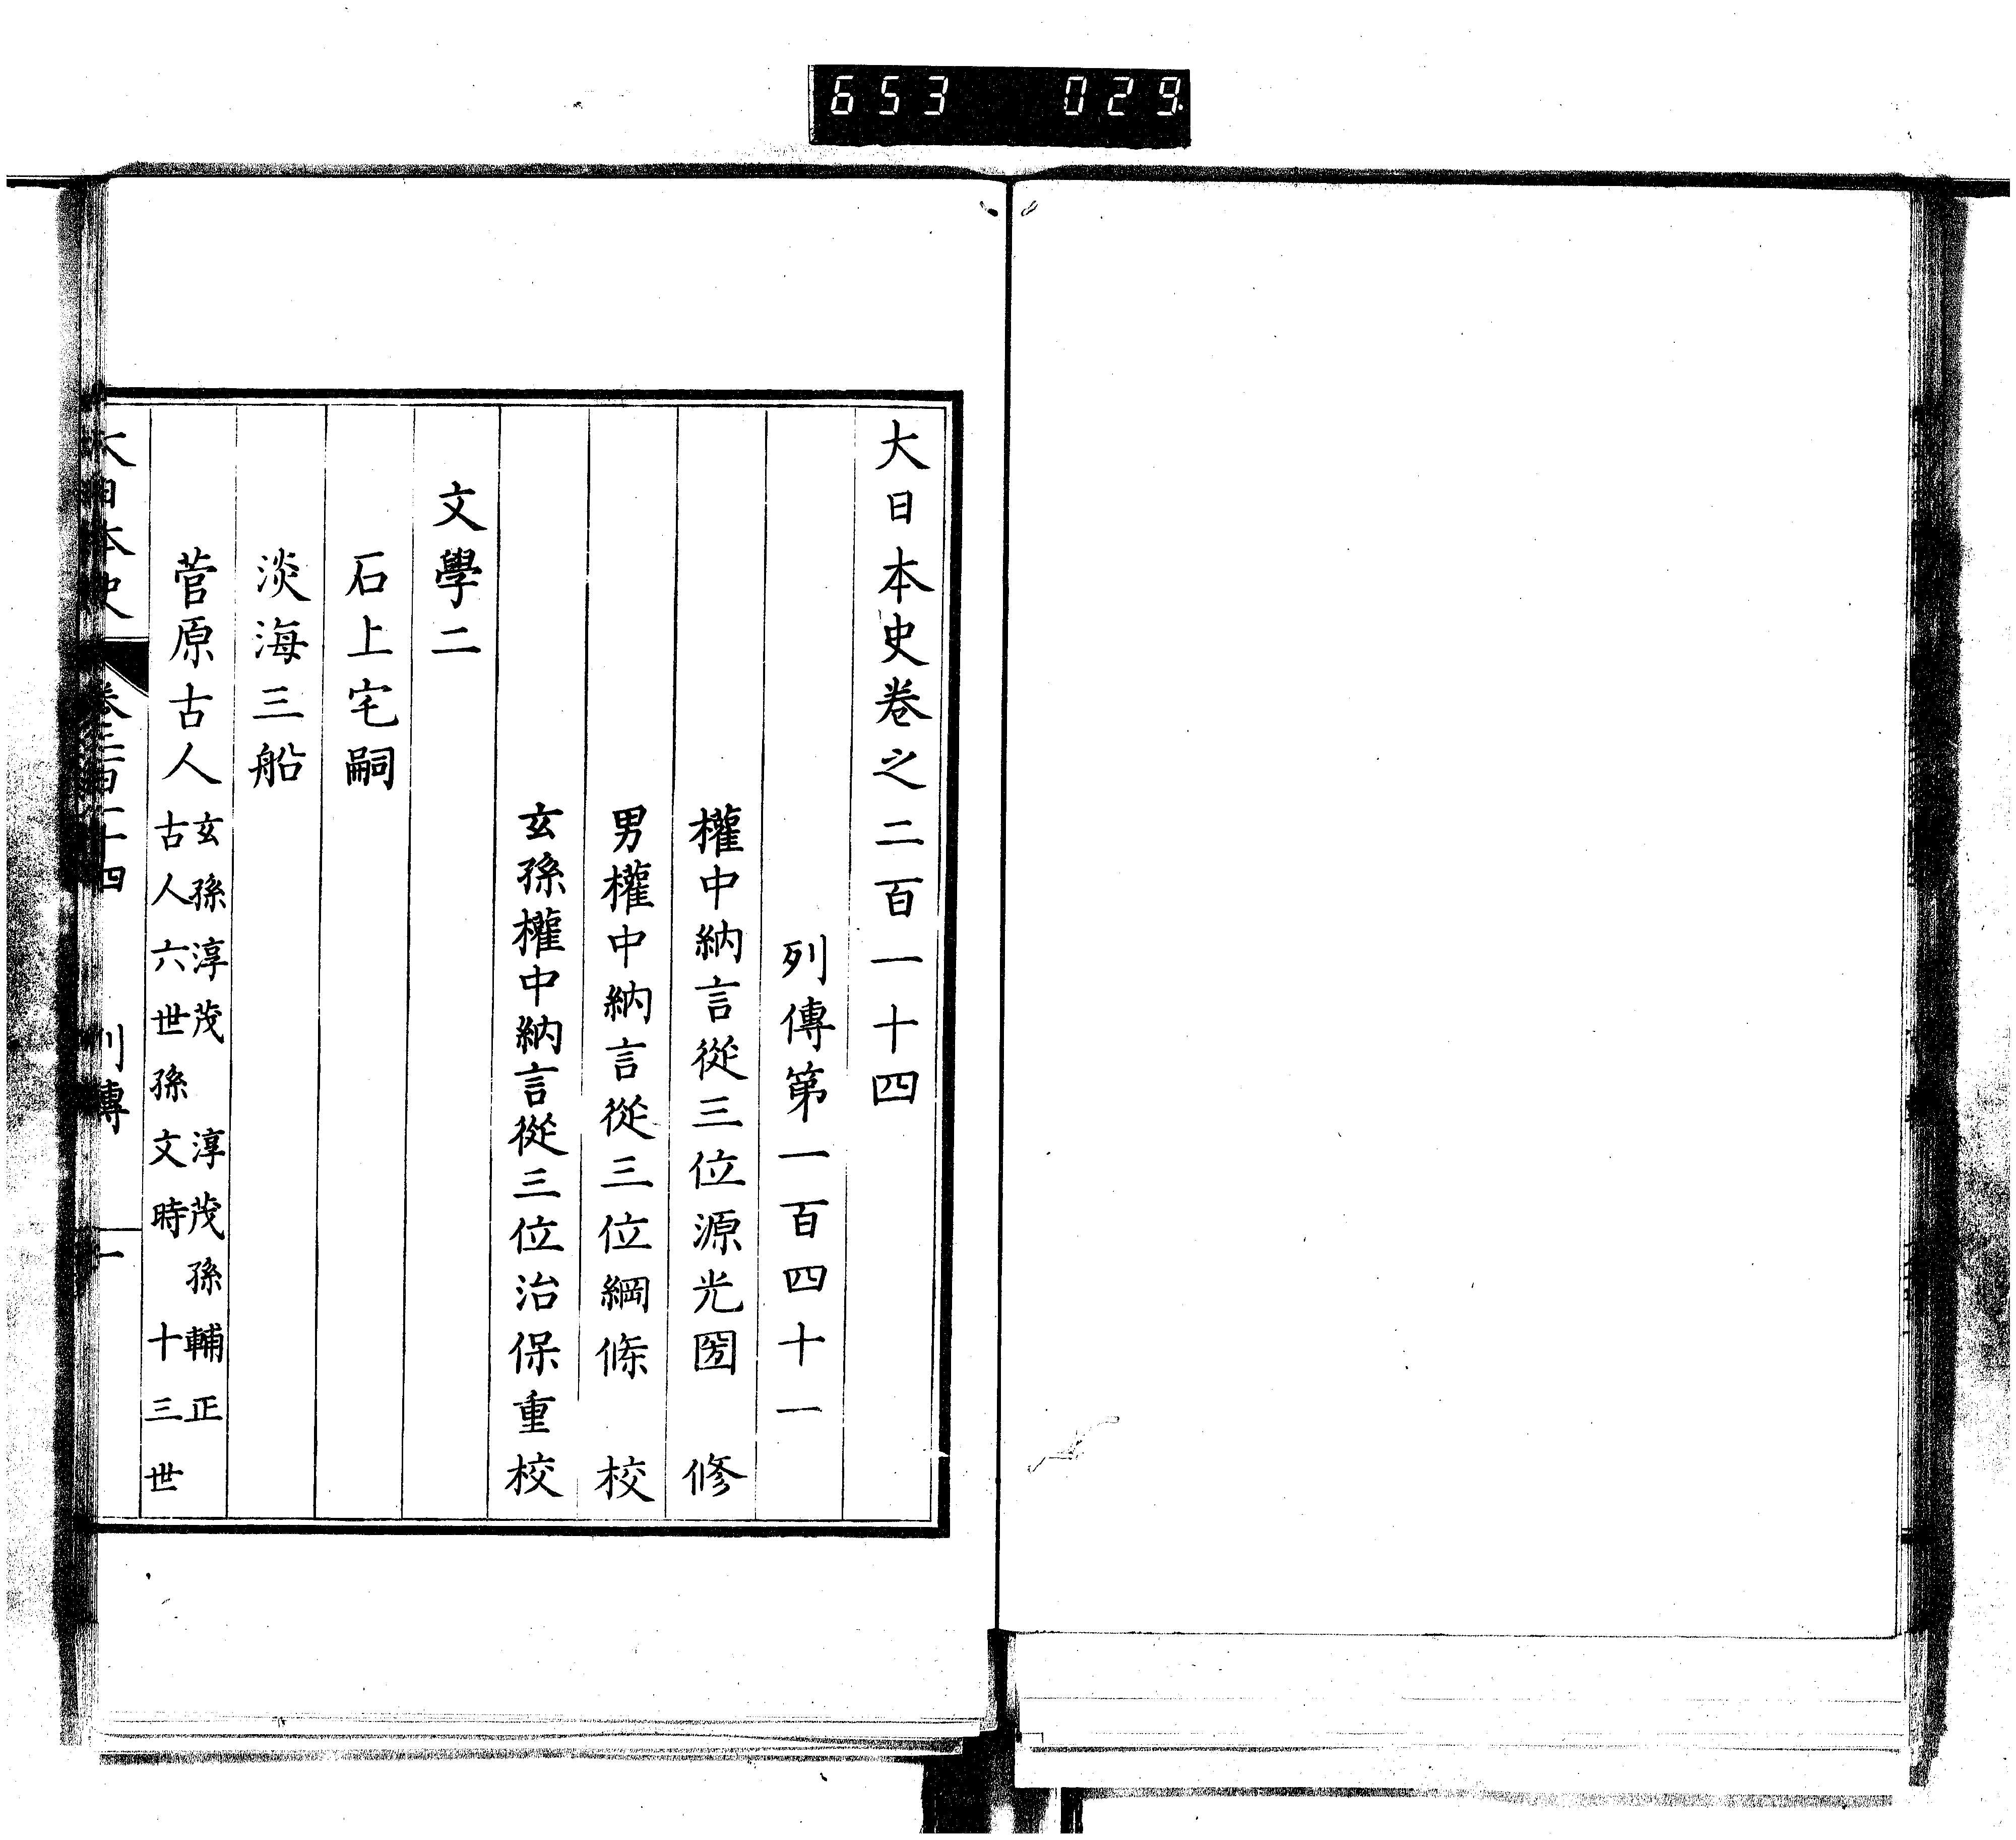 653 029
大日本史卷之二百一十四
列傳第一百四十一
權中納言從三位源光圀 修
男權中納言從三位綱條 校
玄孫權中納言從三位治保重校
文學二
石上宅嗣
淡海三船
菅原古人 玄孫淳茂 淳茂孫輔正
古人六世孫文時 十三世
大日本史 卷二百一十四 列傳 一